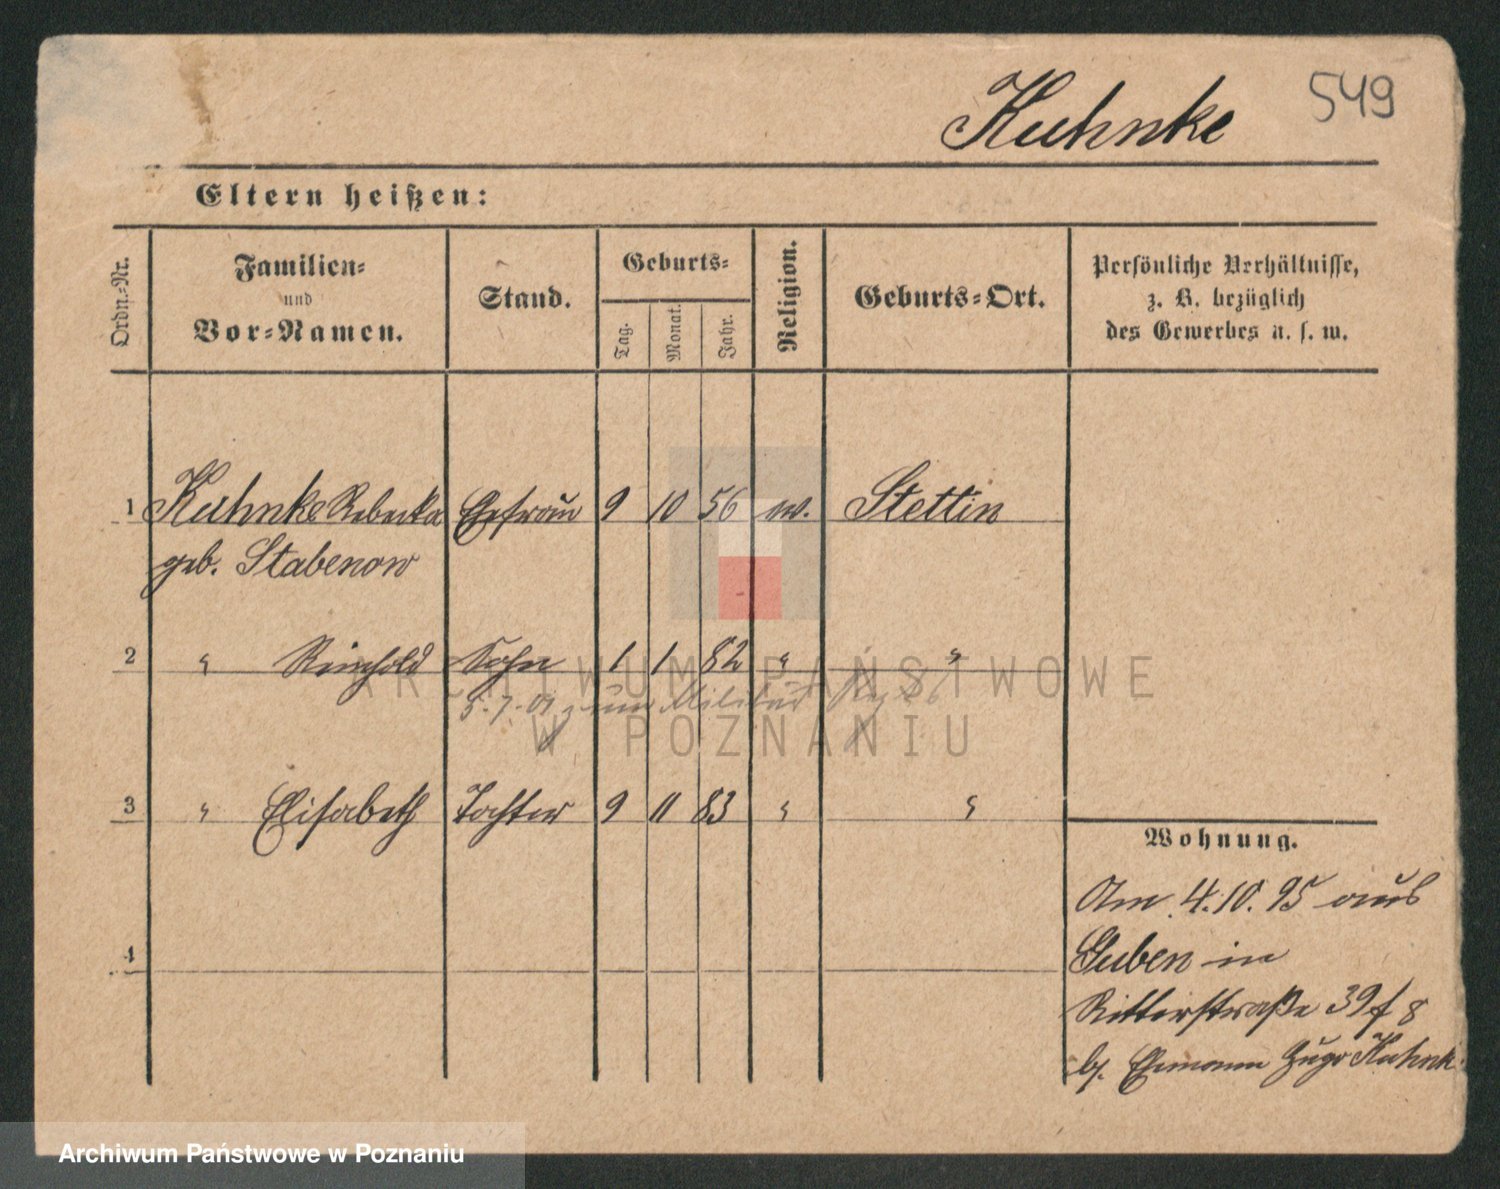 Kuhnke 549
Eltern heißen:
Ordn.-Nr. Familien- und Vor-Namen. Stand. Geburts- Tag. Monat. Jahr. Religion. Geburts-Ort. Persönliche Verhältnisse, z. B. bezüglich des Gewerbes u. s. w.
1 Kuhnke Rebecka Ehefrau 9 10 56 ev. Stettin
geb. Stabenow
2 " Reinhold Sohn 1 1 82 " "
5.7.01 zum Militär
3 " Elisabeth Tochter 9 11 83 " "
4
Wohnung.
Am 4.10.95 aus
Guben in
Ritterstraße 39 f 8
bj. Ehemann Hugo Kuhnke
ARCHIWUM PAŃSTWOWE
W POZNANIU
Archiwum Państwowe w Poznaniu